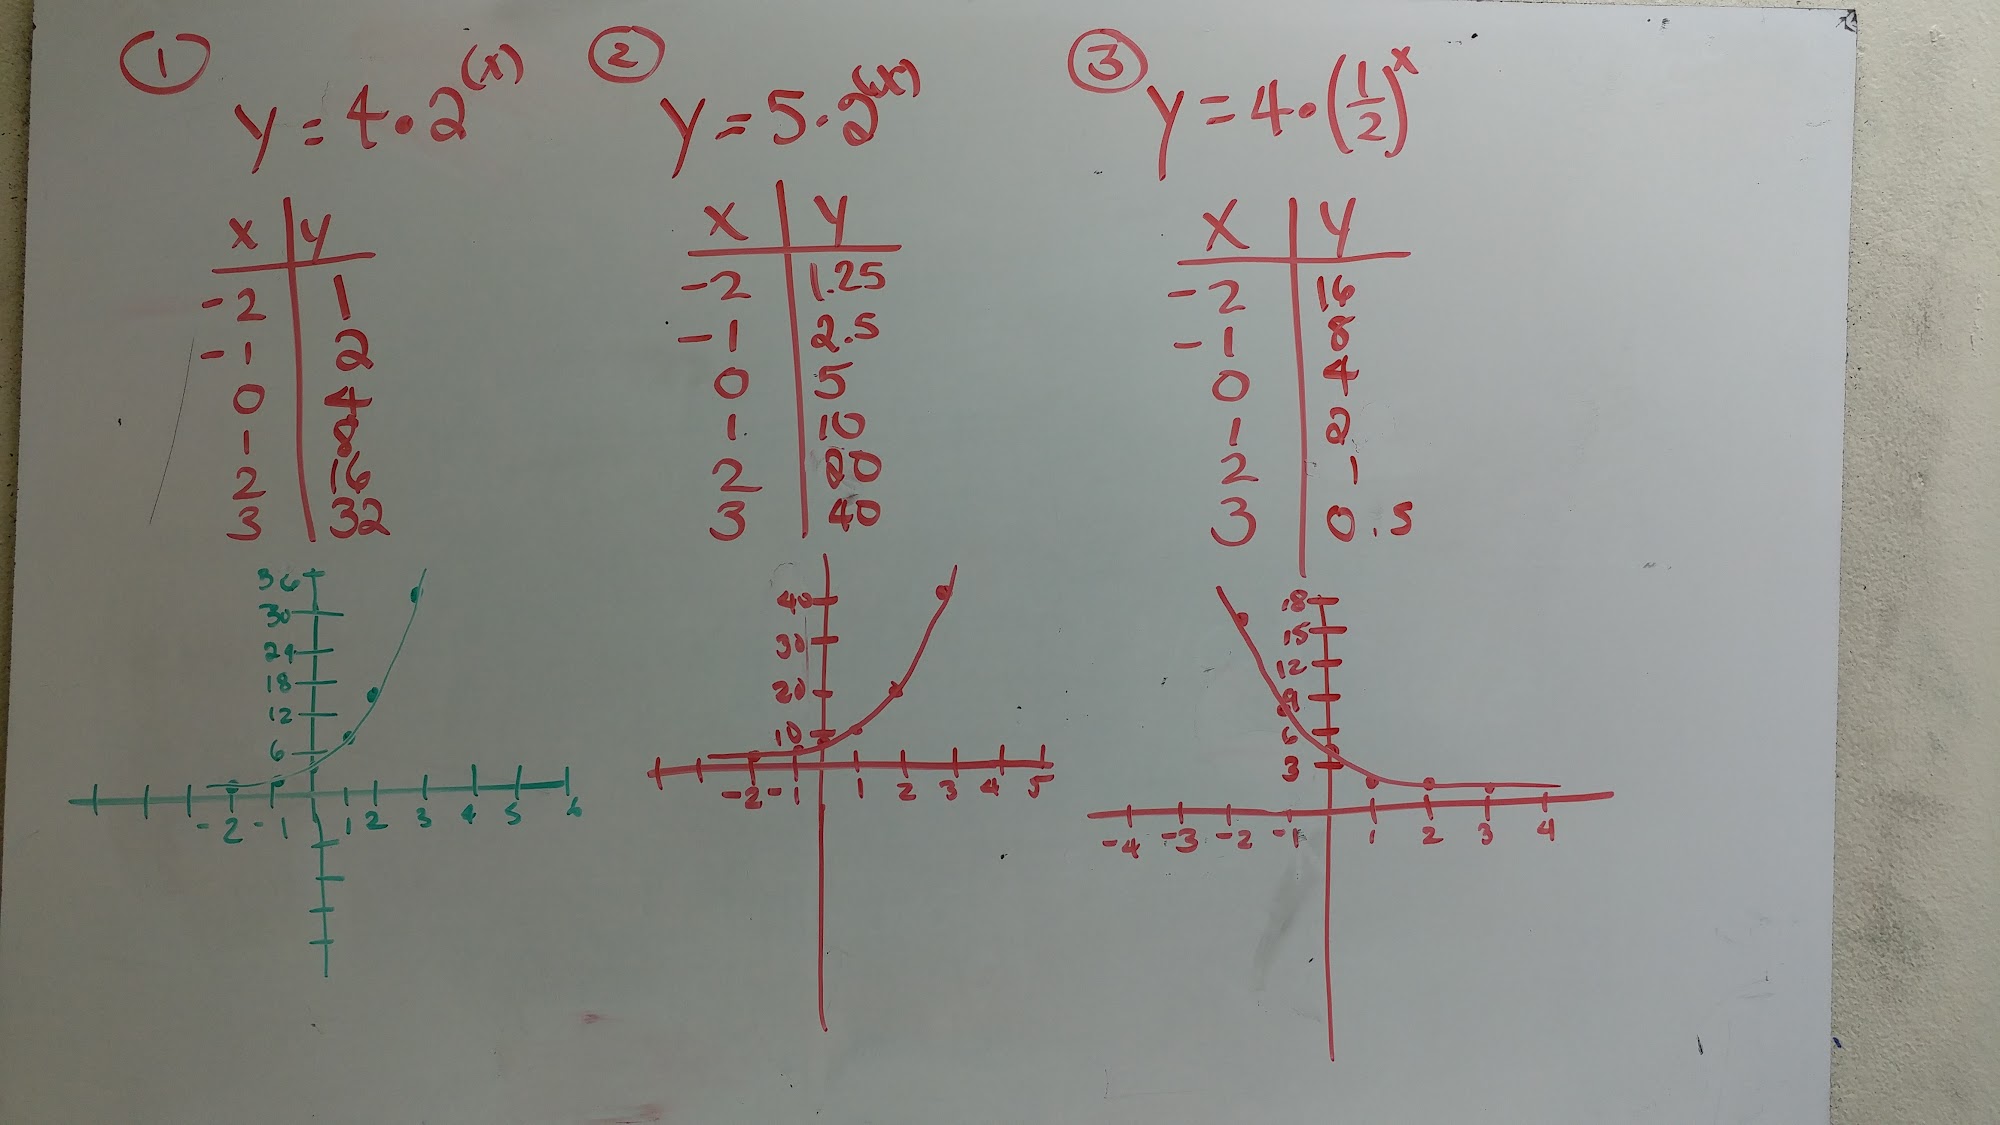 ①
y = 4 · 2^(x)
x | y
-2 | 1
-1 | 2
0 | 4
1 | 8
2 | 16
3 | 32
36
30
24
18
12
6
-2 -1 1 2 3 4 5 6
②
y = 5 · 2^(x)
x | y
-2 | 1.25
-1 | 2.5
0 | 5
1 | 10
2 | 20
3 | 40
40
30
20
10
-2 -1 1 2 3 4 5
③
y = 4 · (1/2)^x
x | y
-2 | 16
-1 | 8
0 | 4
1 | 2
2 | 1
3 | 0.5
18
15
12
9
6
3
-4 -3 -2 -1 1 2 3 4